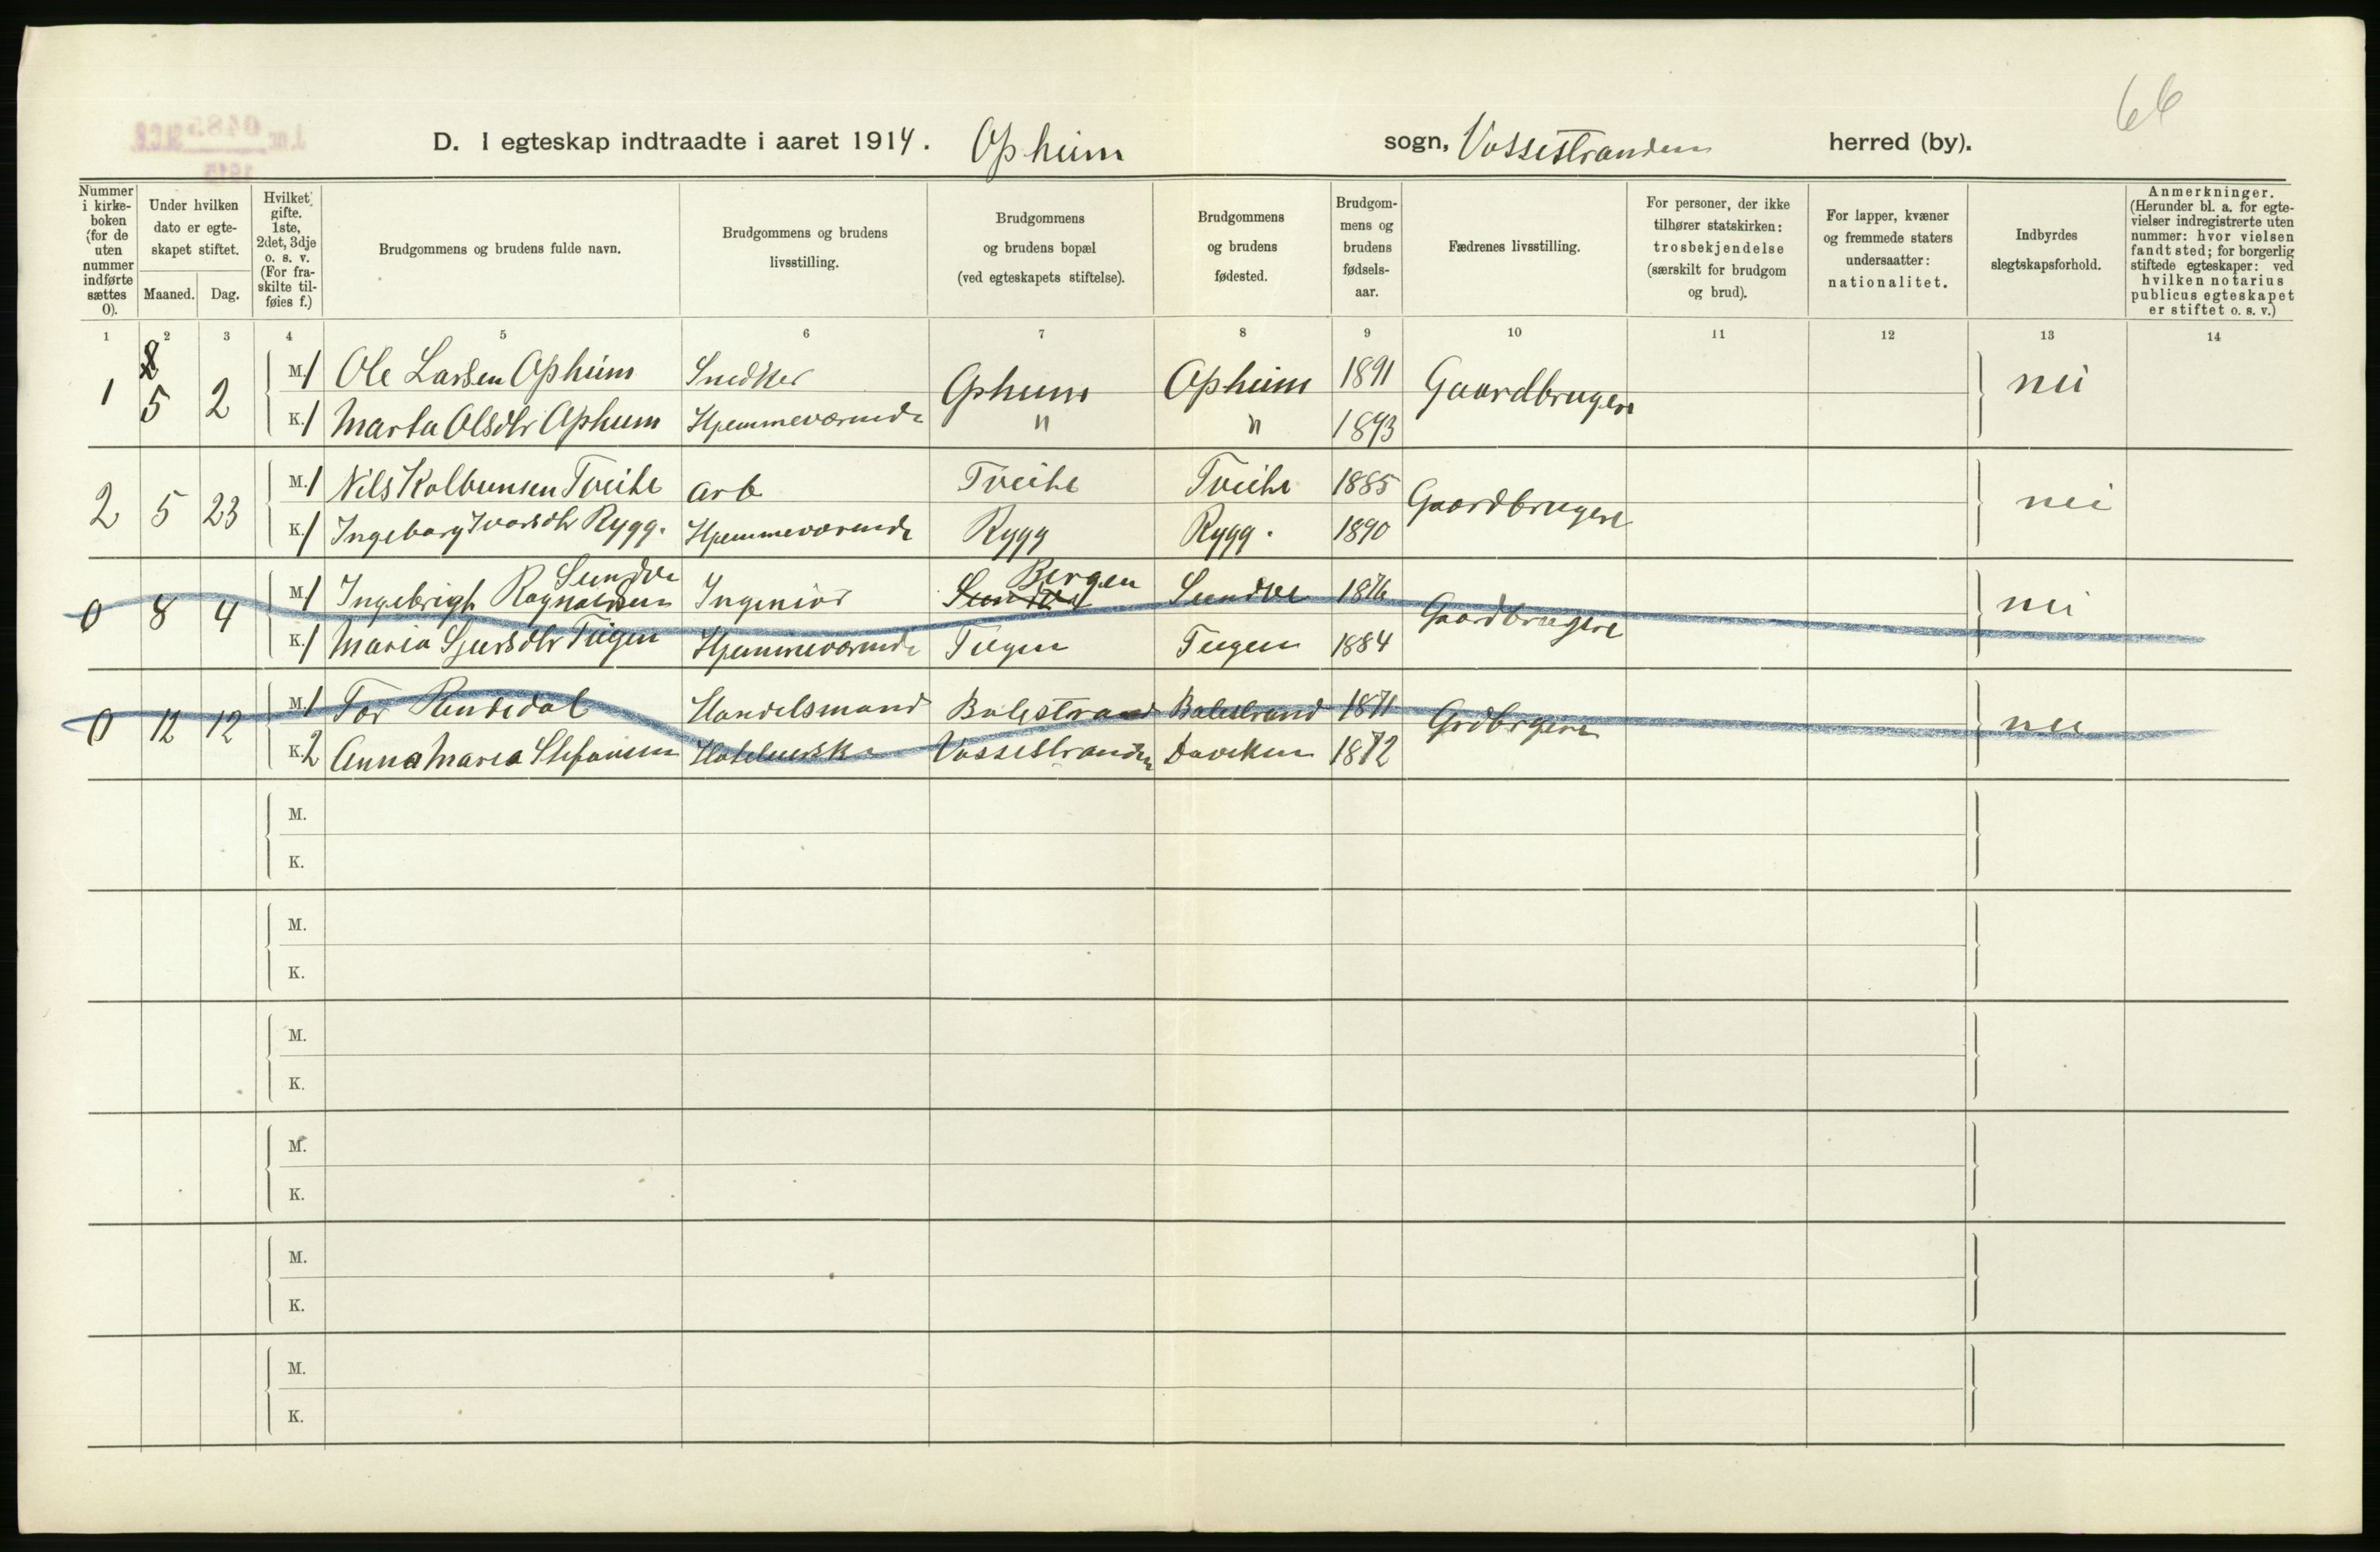 66
D. I egteskap indtraadte i aaret 1914. Opheim sogn, Vossestranden herred (by).
Nummer i kirke-boken (for de uten nummer indførte sættes 0).
Under hvilken dato er egte-skapet stiftet.
Maaned. Dag.
Hvilket gifte. 1ste, 2det, 3dje o. s. v. (For fra-skilte til-føies f.)
Brudgommens og brudens fulde navn.
Brudgommens og brudens livsstilling.
Brudgommens og brudens bopæl (ved egteskapets stiftelse).
Brudgommens og brudens fødested.
Brudgom-mens og brudens fødsels-aar.
Fædrenes livsstilling.
For personer, der ikke tilhører statskirken: trosbekjendelse (særskilt for brudgom og brud).
For lapper, kvæner og fremmede staters undersaatter: nationalitet.
Indbyrdes slegtskapsforhold.
Anmerkninger. (Herunder bl. a. for egte-vielser indregistrerte uten nummer: hvor vielsen fandt sted; for borgerlig stiftede egteskaper: ved hvilken notarius publicus egteskapet er stiftet o. s. v.)
1 2 3 4 5 6 7 8 9 10 11 12 13 14
1 5 2 M. 1 Ole Larsen Opheim Snedker Opheim Opheim 1891 Gaardbrugere nei
K. 1 Marta Olsdtr Opheim Hjemmeværende " " 1893
2 5 23 M. 1 Nils Kolbensen Tveite Arb Tveite Tveite 1885 Gaardbrugere nei
K. 1 Ingeborg Ivarsdtr Rygg. Hjemmeværende Rygg Rygg. 1890
Sundve Bergen
0 8 4 M. 1 Ingebrigt Ragnaldsen Ingeniør Sundve Sundve 1876 Gaardbrugere nei
K. 1 Maria Sjursdtr Tügen Hjemmeværende Tügen Tügen 1884
0 12 12 M. 1 Tor Rendedal Handelsmand Balestrand Balestrand 1871 Grdbrgere nei
K. 2 Anna Maria Stefansen Vossestranden Daviken 1872
M.
K.
M.
K.
M.
K.
M.
K.
M.
K.
M.
K.